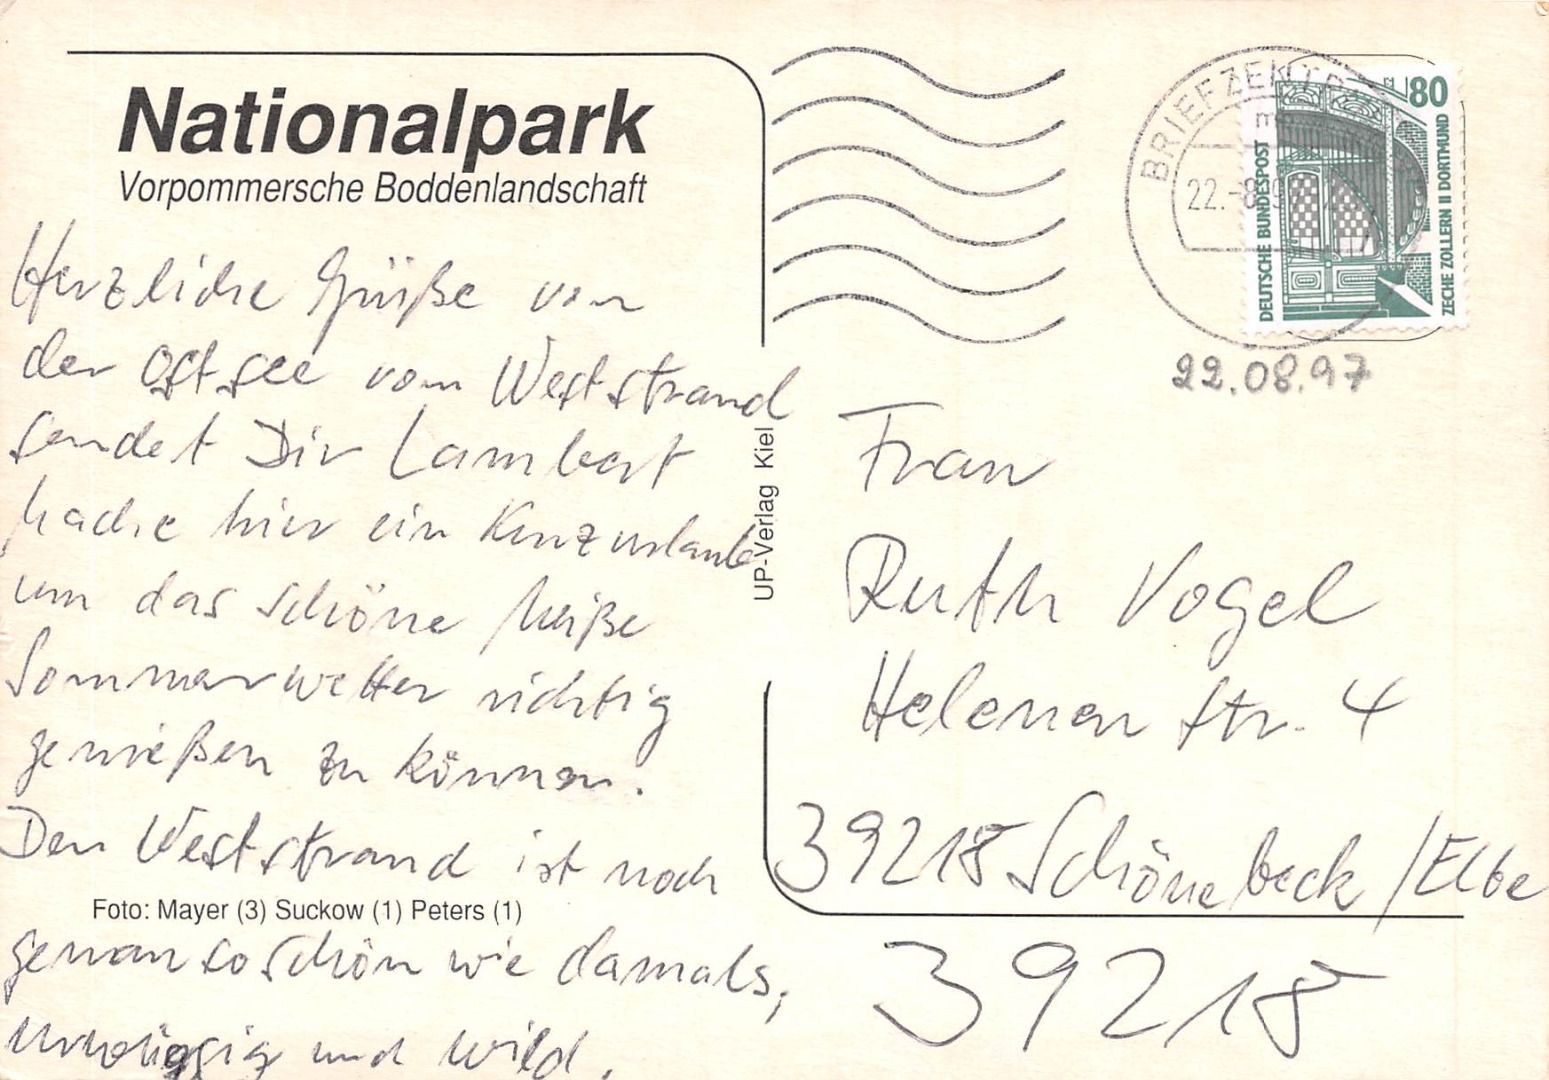 Nationalpark
Vorpommersche Boddenlandschaft
Herzliche Grüße von
der Ostsee vom Weststrand
sendet Dir Lambert
Mache hier ein Kurzurlaub
um das schöne heiße
Sommerwetter richtig
genießen zu können.
Den Weststrand ist noch
Foto: Mayer (3) Suckow (1) Peters (1)
genau so schön wie damals,
und wild.
UP-Verlag Kiel
BRIEFZENTR
22.-8.97
80
DEUTSCHE BUNDESPOST
ZECHE ZOLLERN II DORTMUND
22.08.97
Frau
Ruth Vogel
Helenen Str. 4
39218 Schönebeck/Elbe
39218